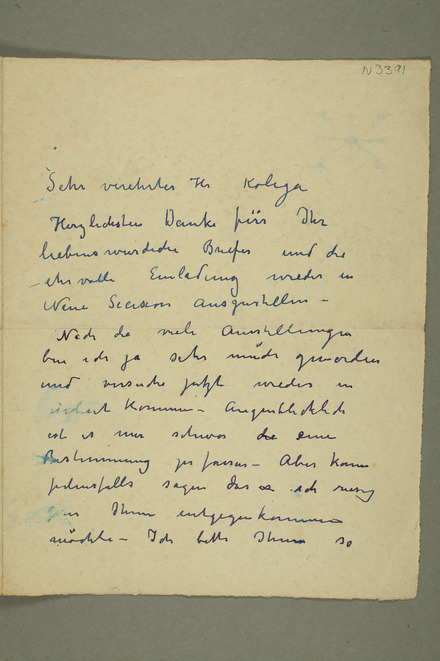 N3391
Sehr verehrter Hr Kolega
Herzlichsten Danke fürs Ihr
liebenswürdiche Briefes und die
ehrvolle Einladung wieder in
Neue Secession auszustellen –
Nach die viele Ausstellungen
bin ich ja sehr müde geworden
und versuche jetzt wieder in
arbeit kommen – Augenblicklich
ist es mir schwer die eine
Bestimmung zu fassen – Aber kann
jedenfalls sagen das ich
gern Ihnen entgegenkommen
möchte – Ich bitte Ihnen so